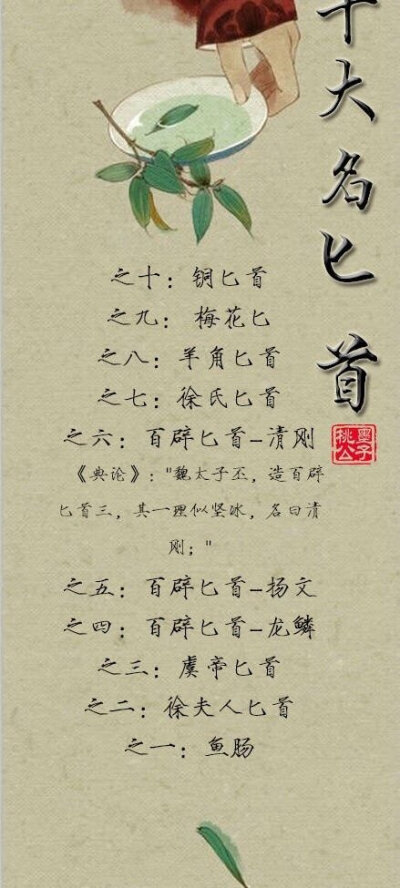 十大名匕首
之十：铜匕首
之九：梅花匕
之八：羊角匕首
之七：徐氏匕首
之六：百辟匕首-清刚
《典论》："魏太子丕，造百辟
匕首三，其一理似坚冰，名曰清
刚；"
之五：百辟匕首-扬文
之四：百辟匕首-龙鳞
之三：虞帝匕首
之二：徐夫人匕首
之一：鱼肠
墨子
桃公